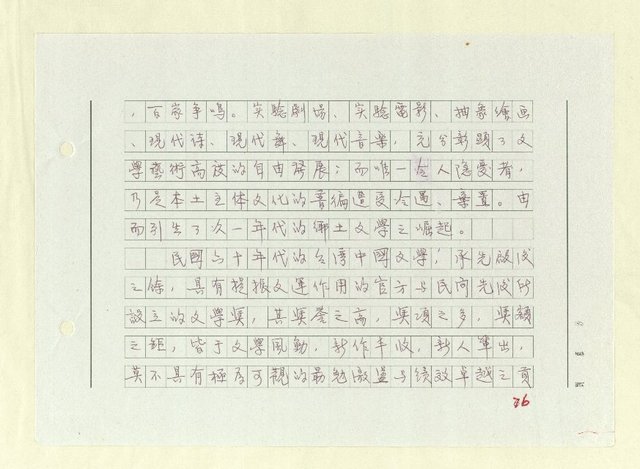 ，百家爭鳴。實驗劇場、實驗電影、抽象繪画
、現代詩、現代舞、現代音樂，充分彰顯了文
學藝術高度的自由發展；而唯一令人隱憂者，
乃是本土主体文化的普遍遭受冷遇、棄置。由
而引出了次一年代的鄉土文學之崛起。
民國六十年代的台灣中國文學，承先啟後
之餘，具有提振文運作用的官方与民间先後所
設立的文學獎，其獎荅之高，獎項之多，獎額
之鉅，皆于文學風動，新作丰收，新人輩出，
莫不具有極為可觀的勗勉激盪与績效卓越之貢
76